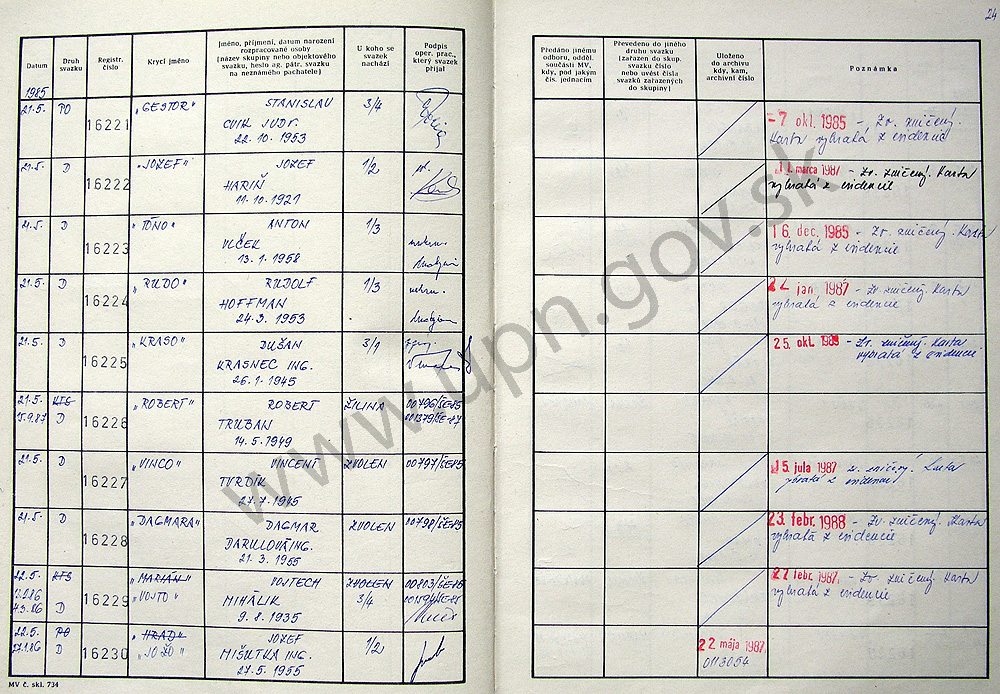 24
Datum
Druh svazku
Registr. číslo
Krycí jméno
Jméno, příjmení, datum narození rozpracované osoby (název skupiny nebo objektového svazku, heslo ag. pátr. svazku na neznámého pachatele)
U koho se svazek nachází
Podpis oper. prac., který svazek přijal
Předáno jinému odboru, odděl. součásti MV, kdy, pod jakým čís. jednacím
Převedeno do jiného druhu svazku (zařazen do skup. svazku číslo nebo uvést čísla svazků zařazených do skupiny)
Uloženo do archivu kdy, kam, archivní číslo
Poznámka
1985
21.5. PO 16221 „GESTOR" STANISLAV 3/4
CVIK JUDr.
22.10.1953
-7 okl. 1985 - Zv. zničený.
Karta vybratá z evidencie
21.5. D 16222 „JOZEF" JOZEF 1/2
HARIŇ
11.10.1921
11. marca 1987 - Zv. zničený. Karta
vybratá z evidencie
21.5. D 16223 „TÓNO" ANTON 1/3
VLČEK
13.1.1958
16. dec. 1985 - Zv. zničený. Karta
vybratá z evidencie
21.5. D 16224 „RUDO" RUDOLF 1/3
HOFFMAN
24.3.1953
jan 1987 - Zv. zničený. Karta
vybratá z evidencie
21.5. D 16225 „KRASO" DUŠAN 3/1
KRASNEC ING.
26.1.1945
25. okt. 1989 - Zv. zničený. Karta
vybratá z evidencie.
21.5. KTS 16226 „ROBERT" ROBERT ŽILINA 00796/ŠE-85
15.9.87 D TRUBAN 001379/ŠE-87
14.5.1949
21.5. D 16227 „VINCO" VINCENT ZVOLEN 00797/ŠE85
TVRDÍK
27.7.1945
15. jula 1987 Zv. zničený. Karta
vybratá z evidencie
21.5. D 16228 „DAGMARA" DAGMAR ZVOLEN 00798/ŠE85
DARULOVÁ ING.
21.3.1955
23. febr. 1988 - Zv. zničený. Karta
vybratá z evidencie
22.5. KTS 16229 „MARIÁN" VOJTECH ZVOLEN 00803/ŠE85
D „VOJTO" MIHÁLIK 3/4
9.8.1935
27 febr. 1987. - Zv. zničený. Karta
vybratá z evidencie
22.5. PO 16230 „HRAD" JOZEF 1/2
D „JOŽO" MIŠUTKA ING.
27.5.1955
22 mája 1987
0113054
MV č. skl. 734
www.upn.gov.sk